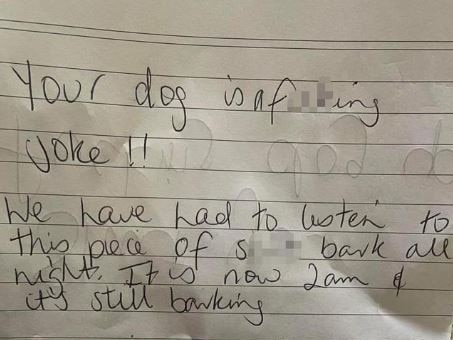 Your dog is a f ing
joke!!
We have had to listen to
this piece of s bark all
night. It is now 2am &
it's still barking